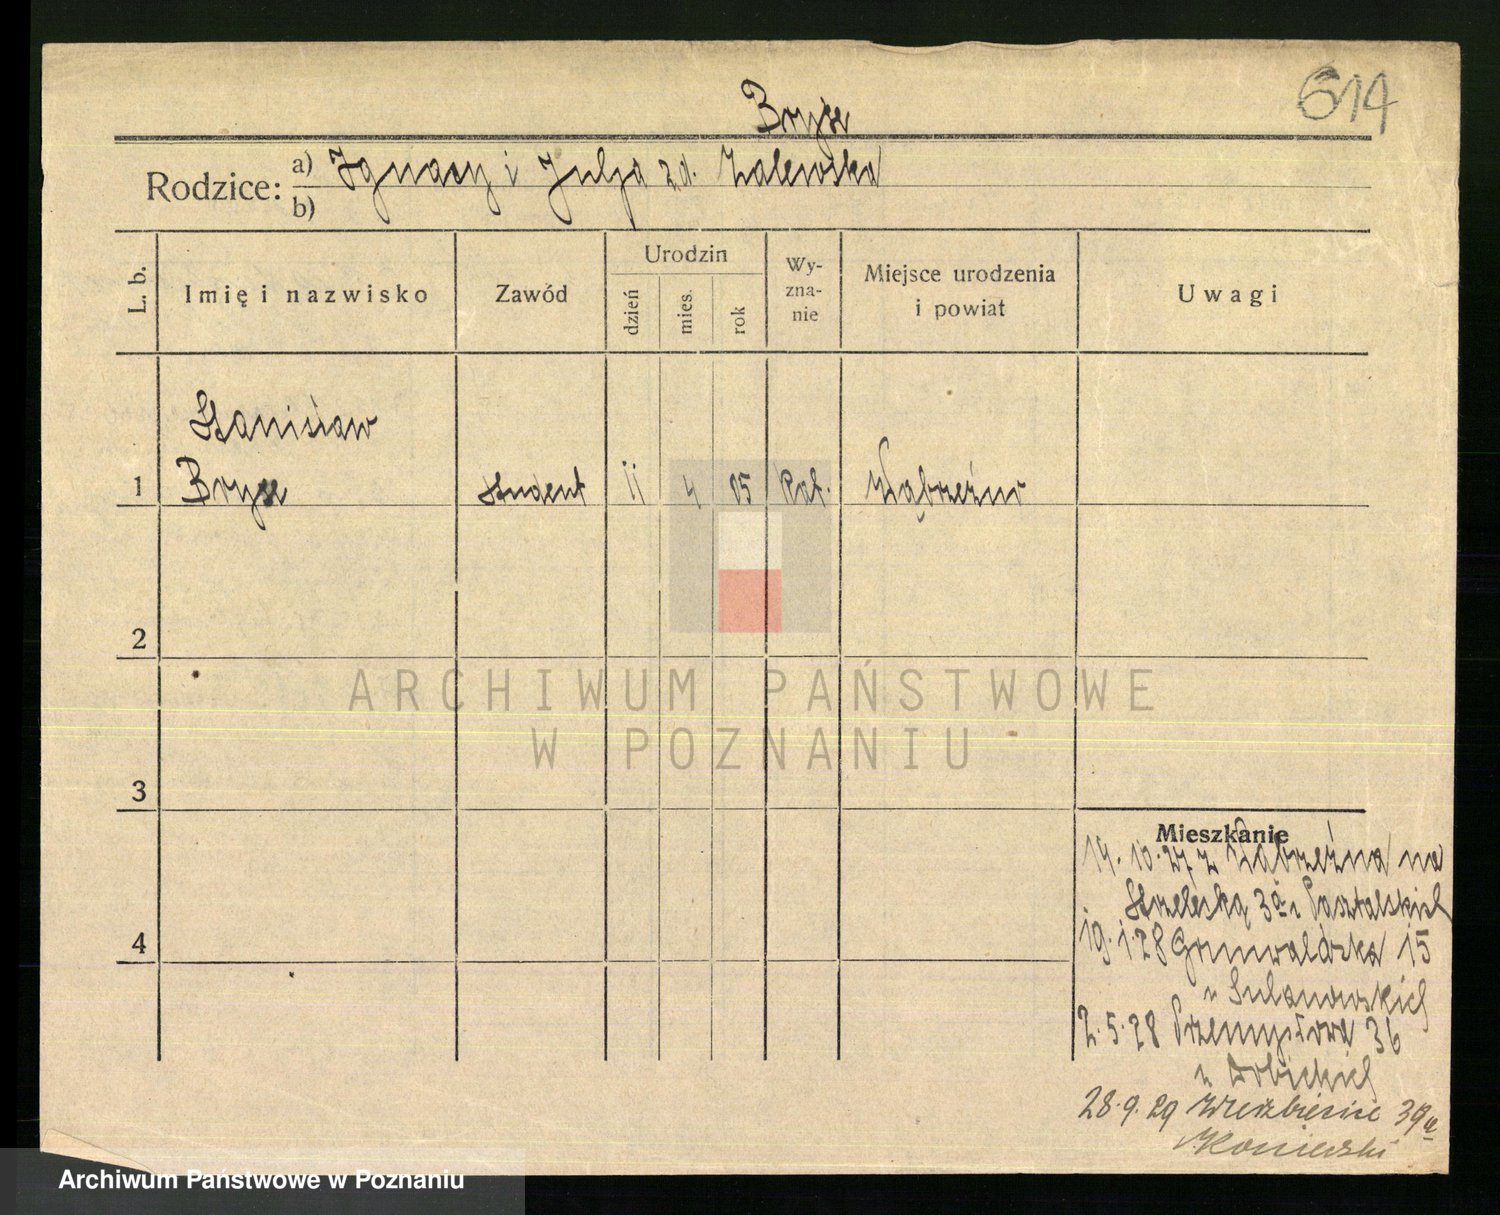 614
Bryse
Rodzice: a) Ignacy i Julja zd. Zalewska
b)
L. b.
Imię i nazwisko
Zawód
Urodzin
dzień
mies.
rok
Wy-
zna-
nie
Miejsce urodzenia
i powiat
Uwagi
Stanisław
1 Bryse student 11 4 05 kat. Wąbrzeźno
2
3
4
Mieszkanie
14.10.27 z Wąbrzeźna na
Strzelecką 3a
19.1.28 Grunwaldzka 15
u Sulanowskich
2.5.28 Przemysłowa 36
u
28.9.29 Wierzbięcice 39a
ARCHIWUM PAŃSTWOWE
W POZNANIU
Archiwum Państwowe w Poznaniu